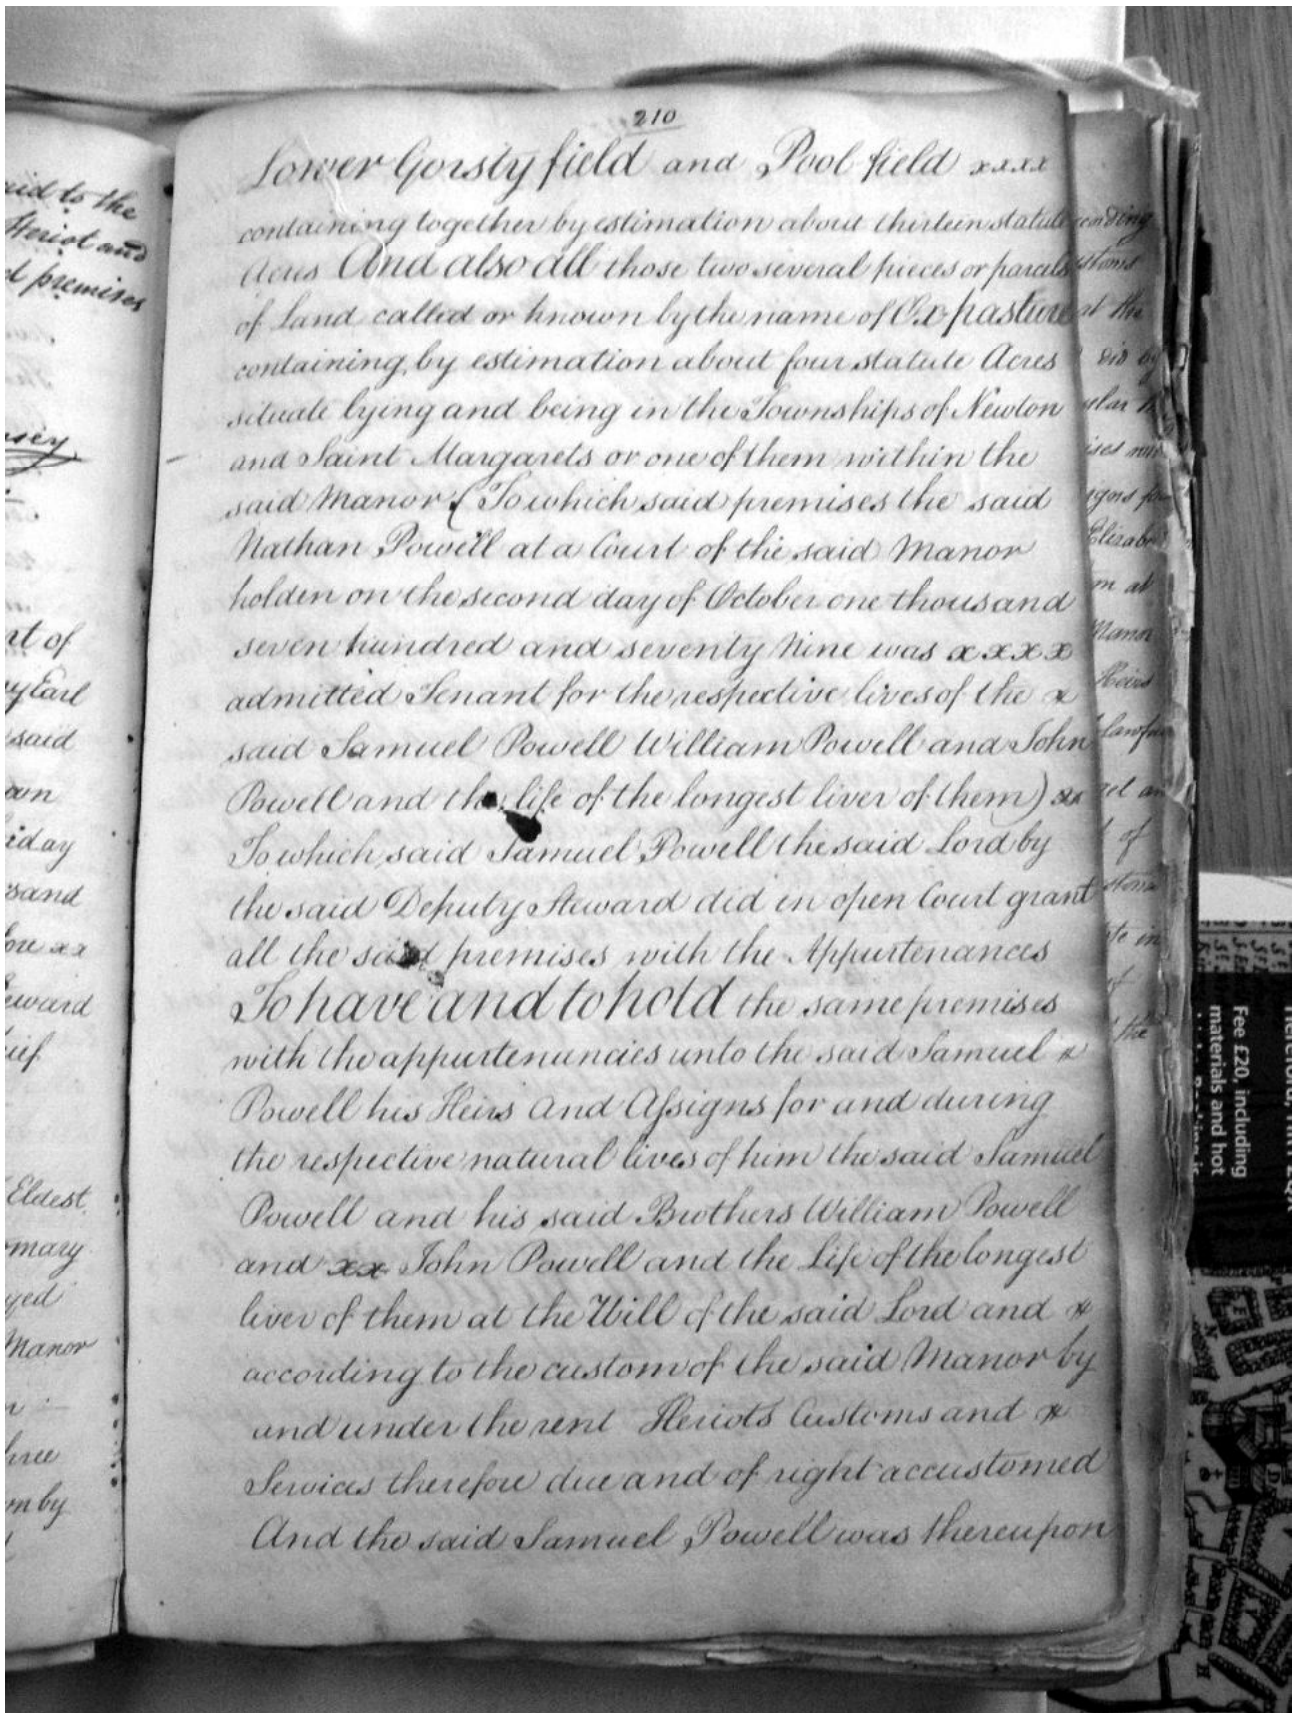 210
Lower Gorsty field and Pool field xxxx
containing together by estimation about thirteen statute
Acres And also all those two several pieces or parcels
of Land called or known by the name of Ox pasture
containing by estimation about four statute Acres
situate lying and being in the Townships of Newton
and Saint Margarets or one of them within the
said Manor (To which said premises the said
Nathan Powell at a Court of the said Manor
holden on the second day of October one thousand
seven hundred and seventy Nine was x x x x
admitted Tenant for the respective lives of the x
said Samuel Powell William Powell and John
Powell and the life of the longest liver of them) xx
To which said Samuel Powell the said Lord by
the said Deputy Steward did in open Court grant
all the said premises with the Appurtenances
To have and to hold the same premises
with the appurtenancies unto the said Samuel x
Powell his Heirs And Assigns for and during
the respective natural lives of him the said Samuel
Powell and his said Brothers William Powell
and xx John Powell and the Life of the longest
liver of them at the Will of the said Lord and x
according to the custom of the said Manor by
and under the rent Heriots Customs and x
Services therefore due and of right accustomed
And the said Samuel Powell was thereupon
uid to the
Heriot and
d premises
rt of
y Earl
said
iday
sand
fore xx
eward
Eldest
omary
yed
Manor
hree
m by
at the
did by
Elizab
m at
Manor
Heirs
of
the
Fee £20, including
materials and hot